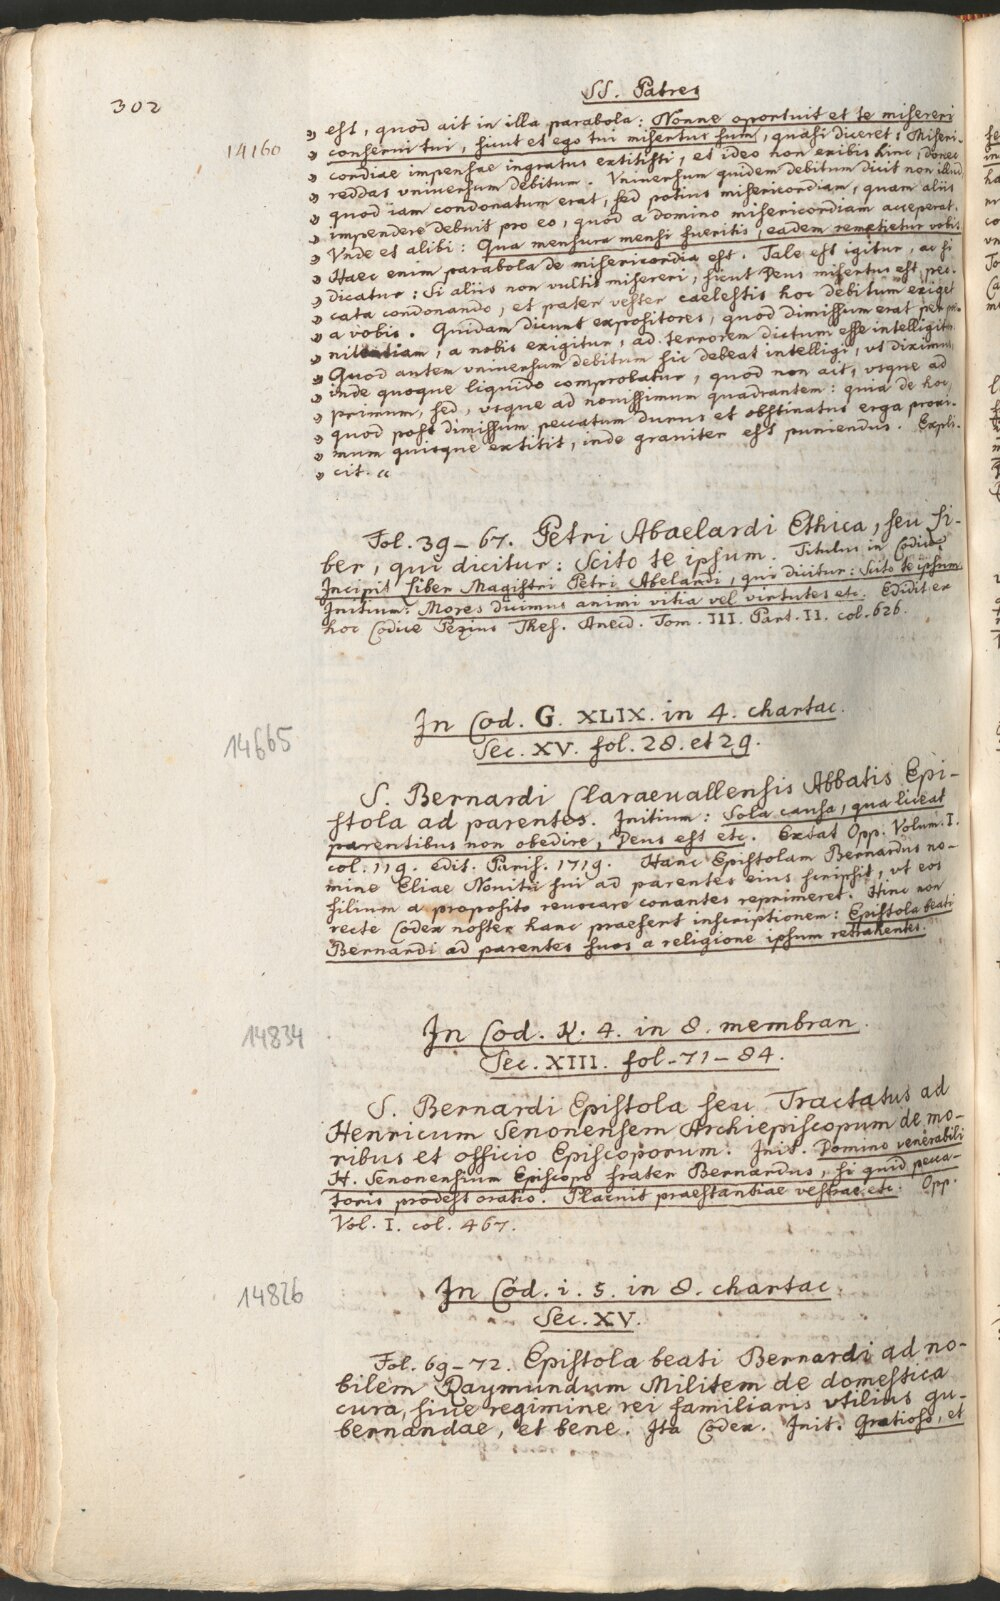 302
SS. Patres
14160
„ est, quod ait in illa parabola: Nonne oportuit et te misereri
„ conserui tui, sicut et ego tui misertus sum, quasi diceret: Miseri-
„ cordiae impensae ingratus extitisti, et ideo non exibis hinc, donec
„ reddas vniuersum debitum. Vniuersum quidem debitum dicit non illud
„ quod iam condonatum erat, sed potius misericordiam, quam aliis
„ impendere debuit pro eo, quod a domino misericordiam acceperat.
„ Vnde et alibi: Qua mensura mensi fueritis, eadem remetietur vobis.
„ Haec enim parabola de misericordia est. Tale est igitur, ac si
„ dicatur: Si aliis non vultis misereri, sicut Deus misertus est, pec-
„ cata condonando, et pater vester caelestis hoc debitum exiget
„ a vobis. Quidam dicunt expositores, quod dimissum erat per poe-
„ nitentiam, a nobis exigitur, ad terrorem dictum esse intelligitur.
„ Quod autem vniuersum debitum sic debeat intelligi, vt diximus,
„ inde quoque liquido comprobatur, quod non ait, vsque ad
„ primum, sed, vsque ad nouissimum quadrantem: quia de hoc,
„ quod post dimissum peccatum durus et obstinatus erga proxi-
„ mum quisque extitit, inde grauiter est puniendus. Expli-
„ cit. “
Fol. 39-67. Petri Abaelardi Ethica, seu Li-
ber, qui dicitur: Scito te ipsum. Titulus in Codice:
Incipit Liber Magistri Petri Abelardi, qui dicitur: Scito te ipsum.
Initium: Mores dicimus animi vitia vel virtutes etc. Edidit ex
hoc Codice Pezius Thes. Anecd. Tom. III. Part. II. col. 626.
14665
In Cod. G. XLIX. in 4. chartac.
Sec. XV. fol. 28. et 29.
S. Bernardi Claraeuallensis Abbatis Epi-
stola ad parentes. Initium: Sola causa, qua liceat
parentibus non obedire, Deus est etc. Extat Opp. Volum. I.
col. 119. edit. Paris. 1719. Hanc Epistolam Bernardus no-
mine Eliae Nouitii sui ad parentes eius scripsit, vt eos
filium a proposito reuocare conantes reprimeret. Hinc non
recte Codex noster hanc praefert inscriptionem: Epistola beati
Bernardi ad parentes suos a religione ipsum retrahentes.
14834
In Cod. K. 4. in 8. membran.
Sec. XIII. fol. 71-84.
S. Bernardi Epistola seu Tractatus ad
Henricum Senonensem Archiepiscopum de mo-
ribus et officio Episcoporum. Init. Domino venerabili
H. Senonensium Episcopo frater Bernardus, si quid pecca-
toris prodest oratio. Placuit praestantiae vestrae etc. Opp.
Vol. I. col. 467.
14826
In Cod. i. 5. in 8. chartac.
Sec. XV.
Fol. 69-72. Epistola beati Bernardi ad no-
bilem Raymundum Militem de domestica
cura, siue regimine rei familiaris vtilius gu-
bernandae, et bene. Ita Codex. Init. Gratioso, et